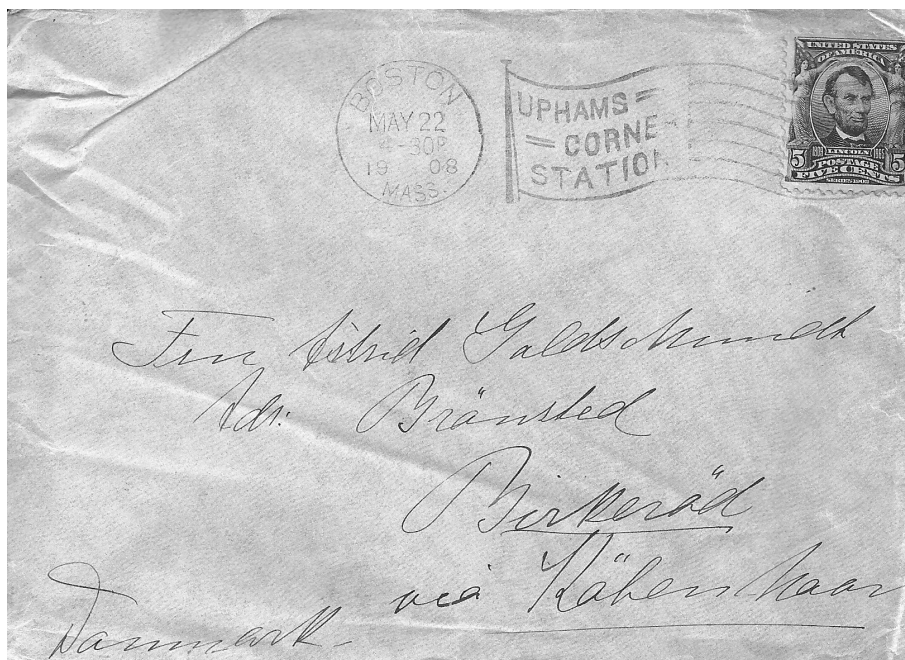 BOSTON
MAY 22
-30P
19 08
MASS.
UPHAMS
CORNE
STATION
UNITED STATES
OF AMERICA
1809 LINCOLN 1865
5 POSTAGE 5
FIVE CENTS
SERIES 1902
Fru Astrid Goldschmidt
Adr: Brönsted
Birkeröd
via Köbenhavn
Danmark.